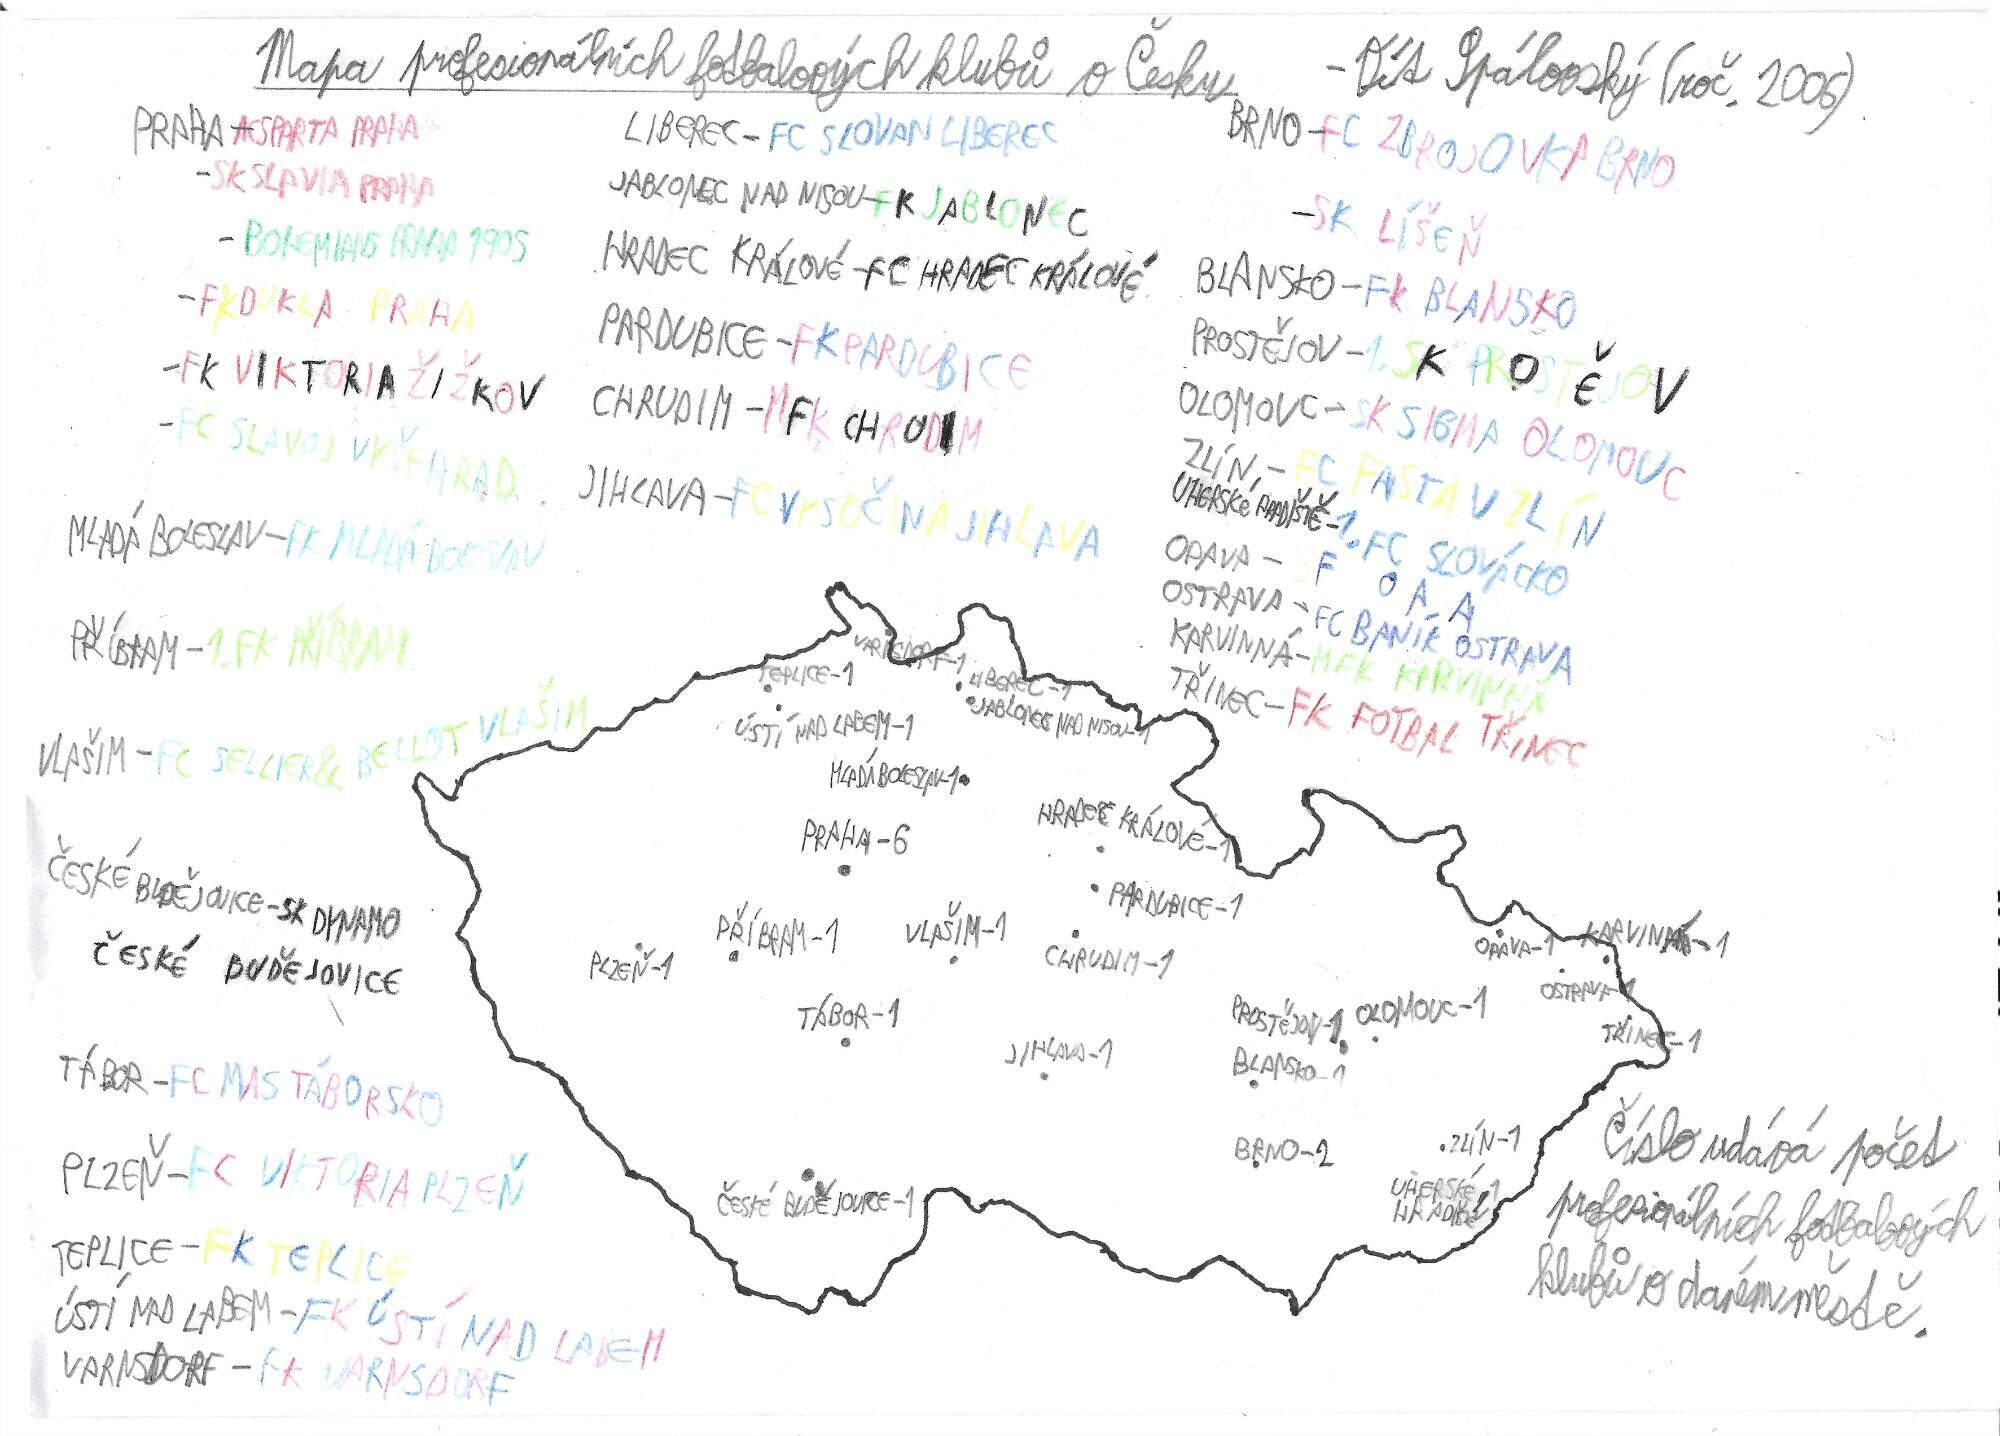 Mapa profesionálních fotbalových klubů v Česku
-Vít Spálovský (roč. 2006)
PRAHA-AC SPARTA PRAHA
-SK SLAVIA PRAHA
-BOHEMIANS PRAHA 1905
-FK DUKLA PRAHA
-FK VIKTORIA ŽIŽKOV
-FC SLAVOJ VYŠEHRAD
MLADÁ BOLESLAV-FK MLADÁ BOLESLAV
PŘÍBRAM-1.FK PŘÍBRAM
VLAŠIM-FC SELLIER & BELLOT VLAŠIM
ČESKÉ BUDĚJOVICE-SK DYNAMO
ČESKÉ BUDĚJOVICE
TÁBOR-FC MAS TÁBORSKO
PLZEŇ-FC VIKTORIA PLZEŇ
TEPLICE-FK TEPLICE
ÚSTÍ NAD LABEM-FK ÚSTÍ NAD LABEM
VARNSDORF-FK VARNSDORF
LIBEREC-FC SLOVAN LIBEREC
JABLONEC NAD NISOU-FK JABLONEC
HRADEC KRÁLOVÉ-FC HRADEC KRÁLOVÉ
PARDUBICE-FK PARDUBICE
CHRUDIM-MFK CHRUDIM
JIHLAVA-FC VYSOČINA JIHLAVA
BRNO-FC ZBROJOVKA BRNO
-SK LÍŠEŇ
BLANSKO-FK BLANSKO
PROSTĚJOV-1.SK PROSTĚJOV
OLOMOUC-SK SIGMA OLOMOUC
ZLÍN-FC FASTAV ZLÍN
UHERSKÉ HRADIŠTĚ-1.FC SLOVÁCKO
OPAVA- F O A A
OSTRAVA-FC BANÍK OSTRAVA
KARVINNÁ-MFK KARVINNÁ
TŘINEC-FK FOTBAL TŘINEC
VARNSDORF-1
TEPLICE-1
LIBEREC-1
JABLONEC NAD NISOU-1
ÚSTÍ NAD LABEM-1
MLADÁ BOLESLAV-1
HRADEC KRÁLOVÉ-1
PRAHA-6
PARDUBICE-1
PŘÍBRAM-1
VLAŠIM-1
CHRUDIM-1
PLZEŇ-1
OPAVA-1
KARVINNÁ-1
OSTRAVA-1
TÁBOR-1
PROSTĚJOV-1
OLOMOUC-1
TŘINEC-1
JIHLAVA-1
BLANSKO-1
BRNO-2
ZLÍN-1
ČESKÉ BUDĚJOVICE-1
UHERSKÉ-1
Číslo udává počet
profesionálních fotbalových
klubů v daném městě.